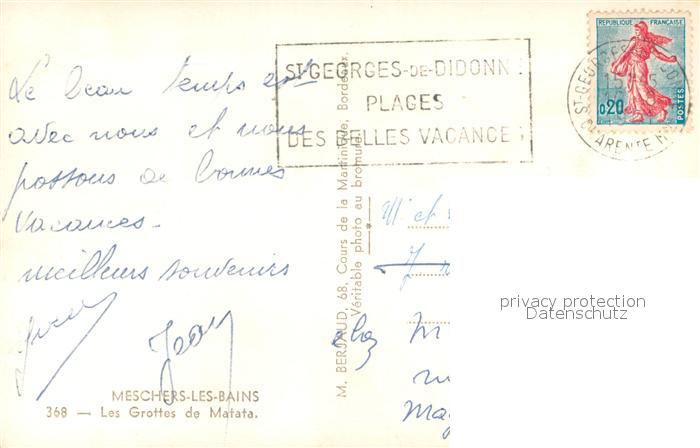 Le beau temps est
avec nous et nous
passons de bonnes
vacances-
meilleurs souvenirs
Jean
MESCHERS-LES-BAINS
368 — Les Grottes de Matata.
M. BERJAUD, 68, Cours de la Martinique, Bordeaux.
Véritable photo au bromure.
ST GEORGES-DE-DIDONNE
PLAGES
DES BELLES VACANCES
REPUBLIQUE FRANÇAISE
0,20
POSTES
ST-GEORGES
CHARENTE
M et
chez M
privacy protection
Datenschutz